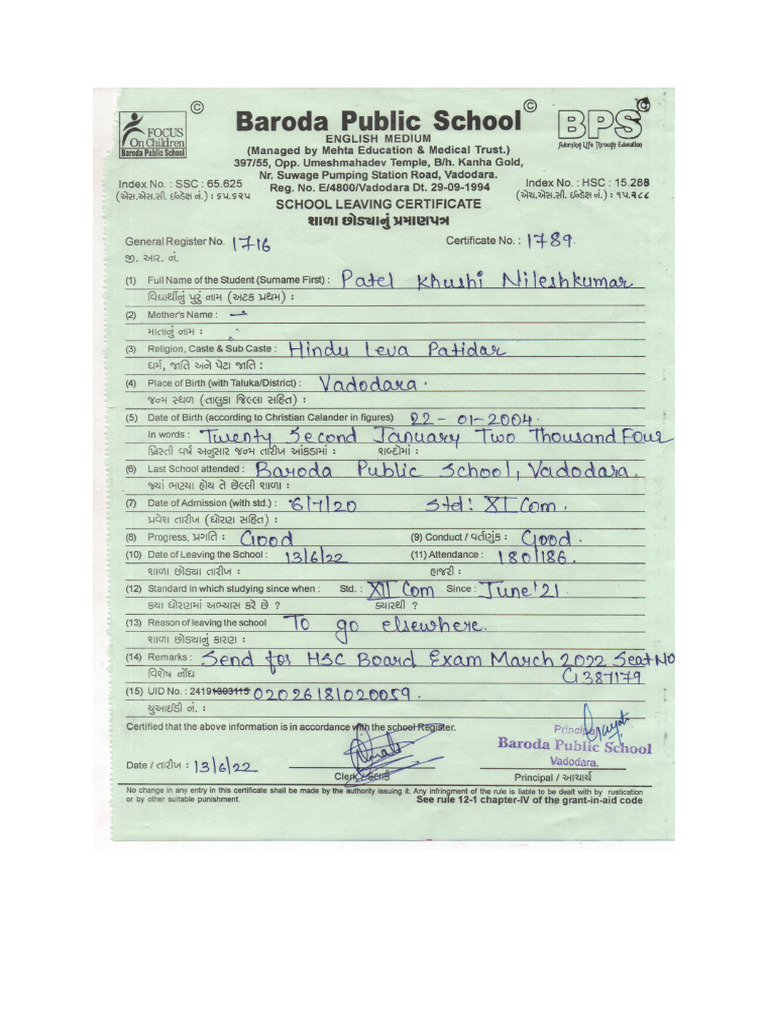 ©
FOCUS
On Children
Baroda Public School
Baroda Public School ©
BPS
Adorning Life Through Education
ENGLISH MEDIUM
(Managed by Mehta Education & Medical Trust.)
397/55, Opp. Umeshmahadev Temple, B/h. Kanha Gold,
Nr. Suwage Pumping Station Road, Vadodara.
Index No. : SSC : 65.625
Index No. : HSC : 15.288
(એસ.એસ.સી. ઈન્ડેક્ષ નં.) : ૬૫.૬૨૫
Reg. No. E/4800/Vadodara Dt. 29-09-1994
(એચ.એસ.સી. ઈન્ડેક્ષ નં.) : ૧૫.૨૮૮
SCHOOL LEAVING CERTIFICATE
શાળા છોડ્યાનું પ્રમાણપત્ર
General Register No. 1716 Certificate No. : 1789.
જી. આર. નં.
(1) Full Name of the Student (Surname First) : Patel Khushi Nileshkumar
વિદ્યાર્થીનું પુરું નામ (અટક પ્રથમ) :
(2) Mother's Name : –
માતાનું નામ :
(3) Religion, Caste & Sub Caste : Hindu Leva Patidar
ધર્મ, જાતિ અને પેટા જાતિ :
(4) Place of Birth (with Taluka/District) : Vadodara.
જન્મ સ્થળ (તાલુકા જિલ્લા સહિત) :
(5) Date of Birth (according to Christian Calander in figures) 22-01-2004.
In words : Twenty Second January Two Thousand Four
ખ્રિસ્તી વર્ષ અનુસાર જન્મ તારીખ આંકડામાં : શબ્દોમાં :
(6) Last School attended : Baroda Public School, Vadodara.
જ્યાં ભણ્યા હોય તે છેલ્લી શાળા :
(7) Date of Admission (with std.) : 6/7/20 Std: XI Com.
પ્રવેશ તારીખ (ધોરણ સહિત) :
(8) Progress, પ્રગતિ : Good (9) Conduct / વર્તણુંક : Good.
(10) Date of Leaving the School : 13/6/22 (11) Attendance : 180/186.
શાળા છોડ્યા તારીખ : હાજરી :
(12) Standard in which studying since when : Std. : XII Com Since : June'21.
કયા ધોરણમાં અભ્યાસ કરે છે ? ક્યારથી ?
(13) Reason of leaving the school To go elsewhere.
શાળા છોડ્યાનું કારણ :
(14) Remarks : Send for HSC Board Exam March 2022 Seat No
વિશેષ નોંધ C1387179
(15) UID No. : 24191303115 02026181020059.
યુઆઈડી નં. :
Certified that the above information is in accordance with the school Register.
Principal
Baroda Public School
Vadodara.
Date / તારીખ : 13/6/22
Clerk / કલાર્ક
Principal / આચાર્ય
No change in any entry in this certificate shall be made by the authority issuing it. Any infringment of the rule is liable to be dealt with by rustication
or by other suitable punishment. See rule 12-1 chapter-IV of the grant-in-aid code